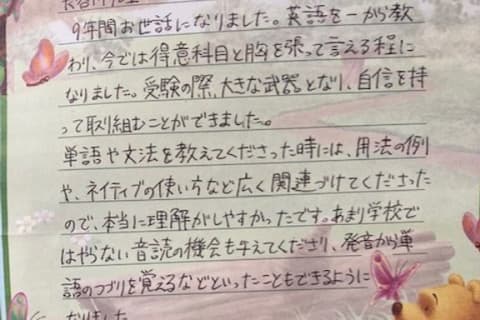 9年間お世話になりました。英語を一から教
わり、今では得意科目と胸を張って言える程に
なりました。受験の際、大きな武器となり、自信を持
って取り組むことができました。
単語や文法を教えてくださった時には、用法の例
や、ネイティブの使い方など広く関連づけてくださった
ので、本当に理解がしやすかったです。あまり学校で
はやらない音読の機会も与えてくださり、発音から単
語のつづりを覚えるなどといったこともできるように
なりました